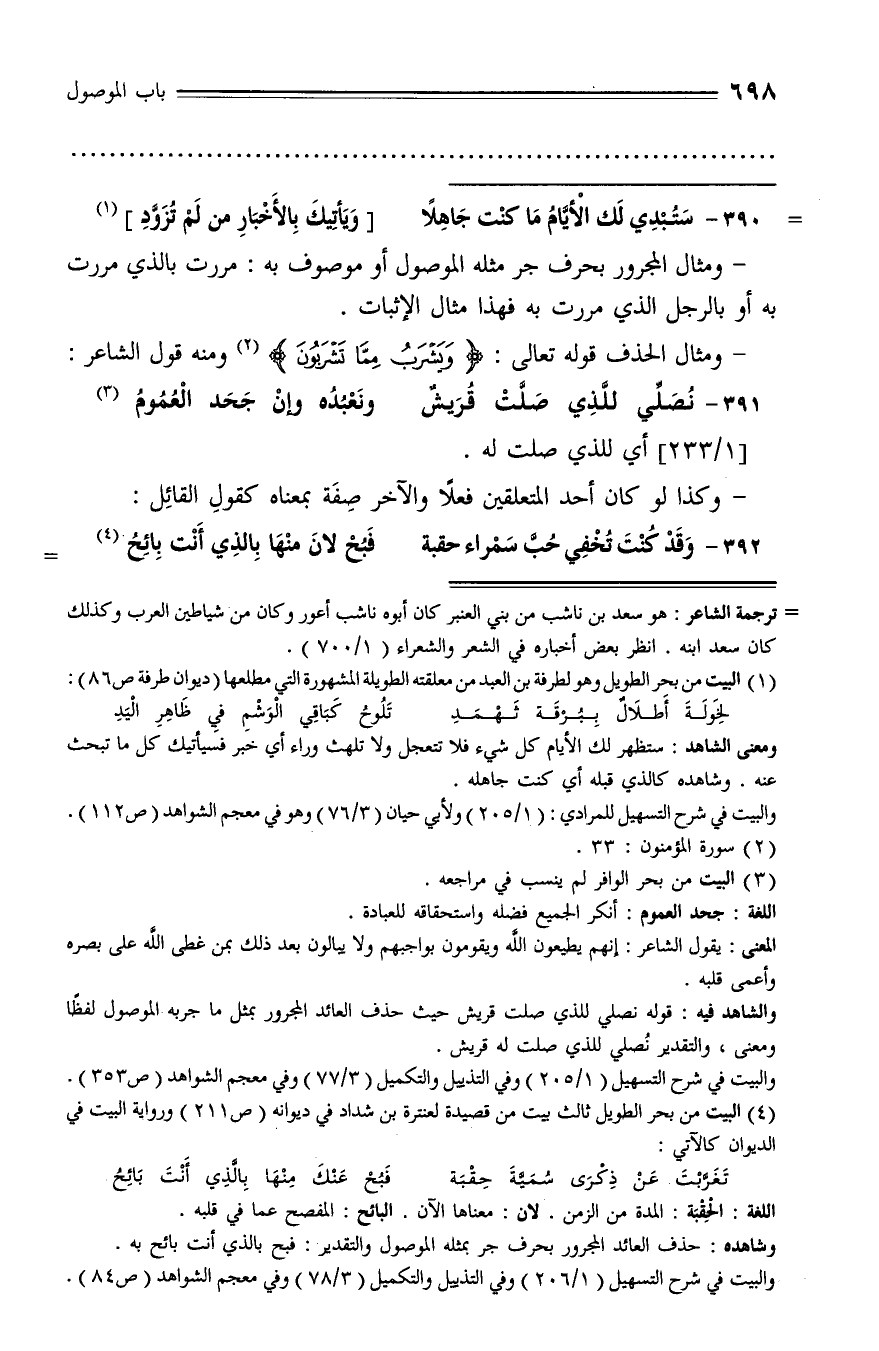 ٦٩٨ باب الموصول
= ٣٩٠ - سَتُبْدِي لَك الْأيَّامُ مَا كنْت جَاهِلًا [ وَيَأتِيكَ بِالأَخْبَارِ من لَمْ تُزَوَّدِ ] (١)
- ومثال المجرور بحرف جر مثله الموصول أو موصوف به : مررت بالذي مررت
به أو بالرجل الذي مررت به فهذا مثال الإثبات .
- ومثال الحذف قوله تعالى : ﴿ وَيَشْرَبُ مِمَّا تَشْرَبُونَ ﴾ (٢) ومنه قول الشاعر :
٣٩١ - نُصَلِّي للَّذِي صَلَّتْ قُرَيشٌ ونَعْبُدُه وإنْ جَحَد الْعُمُومُ (٣)
[٢٣٣/١] أي للذي صلت له .
- وكذا لو كان أحد المتعلقين فعلًا والآخر صِفَة بمعناه كقولِ القائِل :
٣٩٢ - وَقَدْ كُنْتَ تُخْفِي حُبَّ سَمْراء حقبة فَبُحْ لانَ منْهَا بِالذِي أَنْت بائِحُ (٤) =
= ترجمة الشاعر : هو سعد بن ناشب من بني العنبر كان أبوه ناشب أعور وكان من شياطين العرب وكذلك
كان سعد ابنه . انظر بعض أخباره في الشعر والشعراء ( ٧٠٠/١ ) .
(١) البيت من بحر الطويل وهو لطرفة بن العبد من معلقته الطويلة المشهورة التي مطلعها (ديوان طرفة ص٨٦) :
لِخَولَـةَ أَطـلَالٌ بِـبُـرْقَـة ثَـهْـمَـدِ تَلُوحُ كَبَاقِي الْوَشْمِ فِي ظَاهِرِ الْيَدِ
ومعنى الشاهد : ستظهر لك الأيام كل شيء فلا تتعجل ولا تلهث وراء أي خبر فسيأتيك كل ما تبحث
عنه . وشاهده كالذي قبله أي كنت جاهله .
والبيت في شرح التسهيل للمرادي : ( ٢٠٥/١ ) ولأبي حيان ( ٧٦/٣ ) وهو في معجم الشواهد ( ص١١٢ ) .
(٢) سورة المؤمنون : ٣٣ .
(٣) البيت من بحر الوافر لم ينسب في مراجعه .
اللغة : جحد العموم : أنكر الجميع فضله واستحقاقه للعبادة .
المعنى : يقول الشاعر : إنهم يطيعون اللَّه ويقومون بواجبهم ولا يبالون بعد ذلك بمن غطى اللَّه على بصره
وأعمى قلبه .
والشاهد فيه : قوله نصلي للذي صلت قريش حيث حذف العائد المجرور بمثل ما جربه الموصول لفظًا
ومعنى ، والتقدير نُصلي للذي صلت له قريش .
والبيت في شرح التسهيل ( ٢٠٥/١ ) وفي التذييل والتكميل ( ٧٧/٣ ) وفي معجم الشواهد ( ص٣٥٣ ) .
(٤) البيت من بحر الطويل ثالث بيت من قصيدة لعنترة بن شداد في ديوانه ( ص٢١١ ) ورواية البيت في
الديوان كالآتي :
تَعَزَّبْتَ عَنْ ذِكْرَى سُمَيَّةَ حِقْبَة فَبُحْ عَنْكَ مِنْهَا بِالَّذِي أَنْتَ بَائِحُ
اللغة : الْحِقْبَة : المدة من الزمن . لان : معناها الآن . البائح : المفصح عما في قلبه .
وشاهده : حذف العائد المجرور بحرف جر بمثله الموصول والتقدير : فبح بالذي أنت بائح به .
والبيت في شرح التسهيل ( ٢٠٦/١ ) وفي التذييل والتكميل ( ٧٨/٣ ) وفي معجم الشواهد ( ص٨٤ ) .